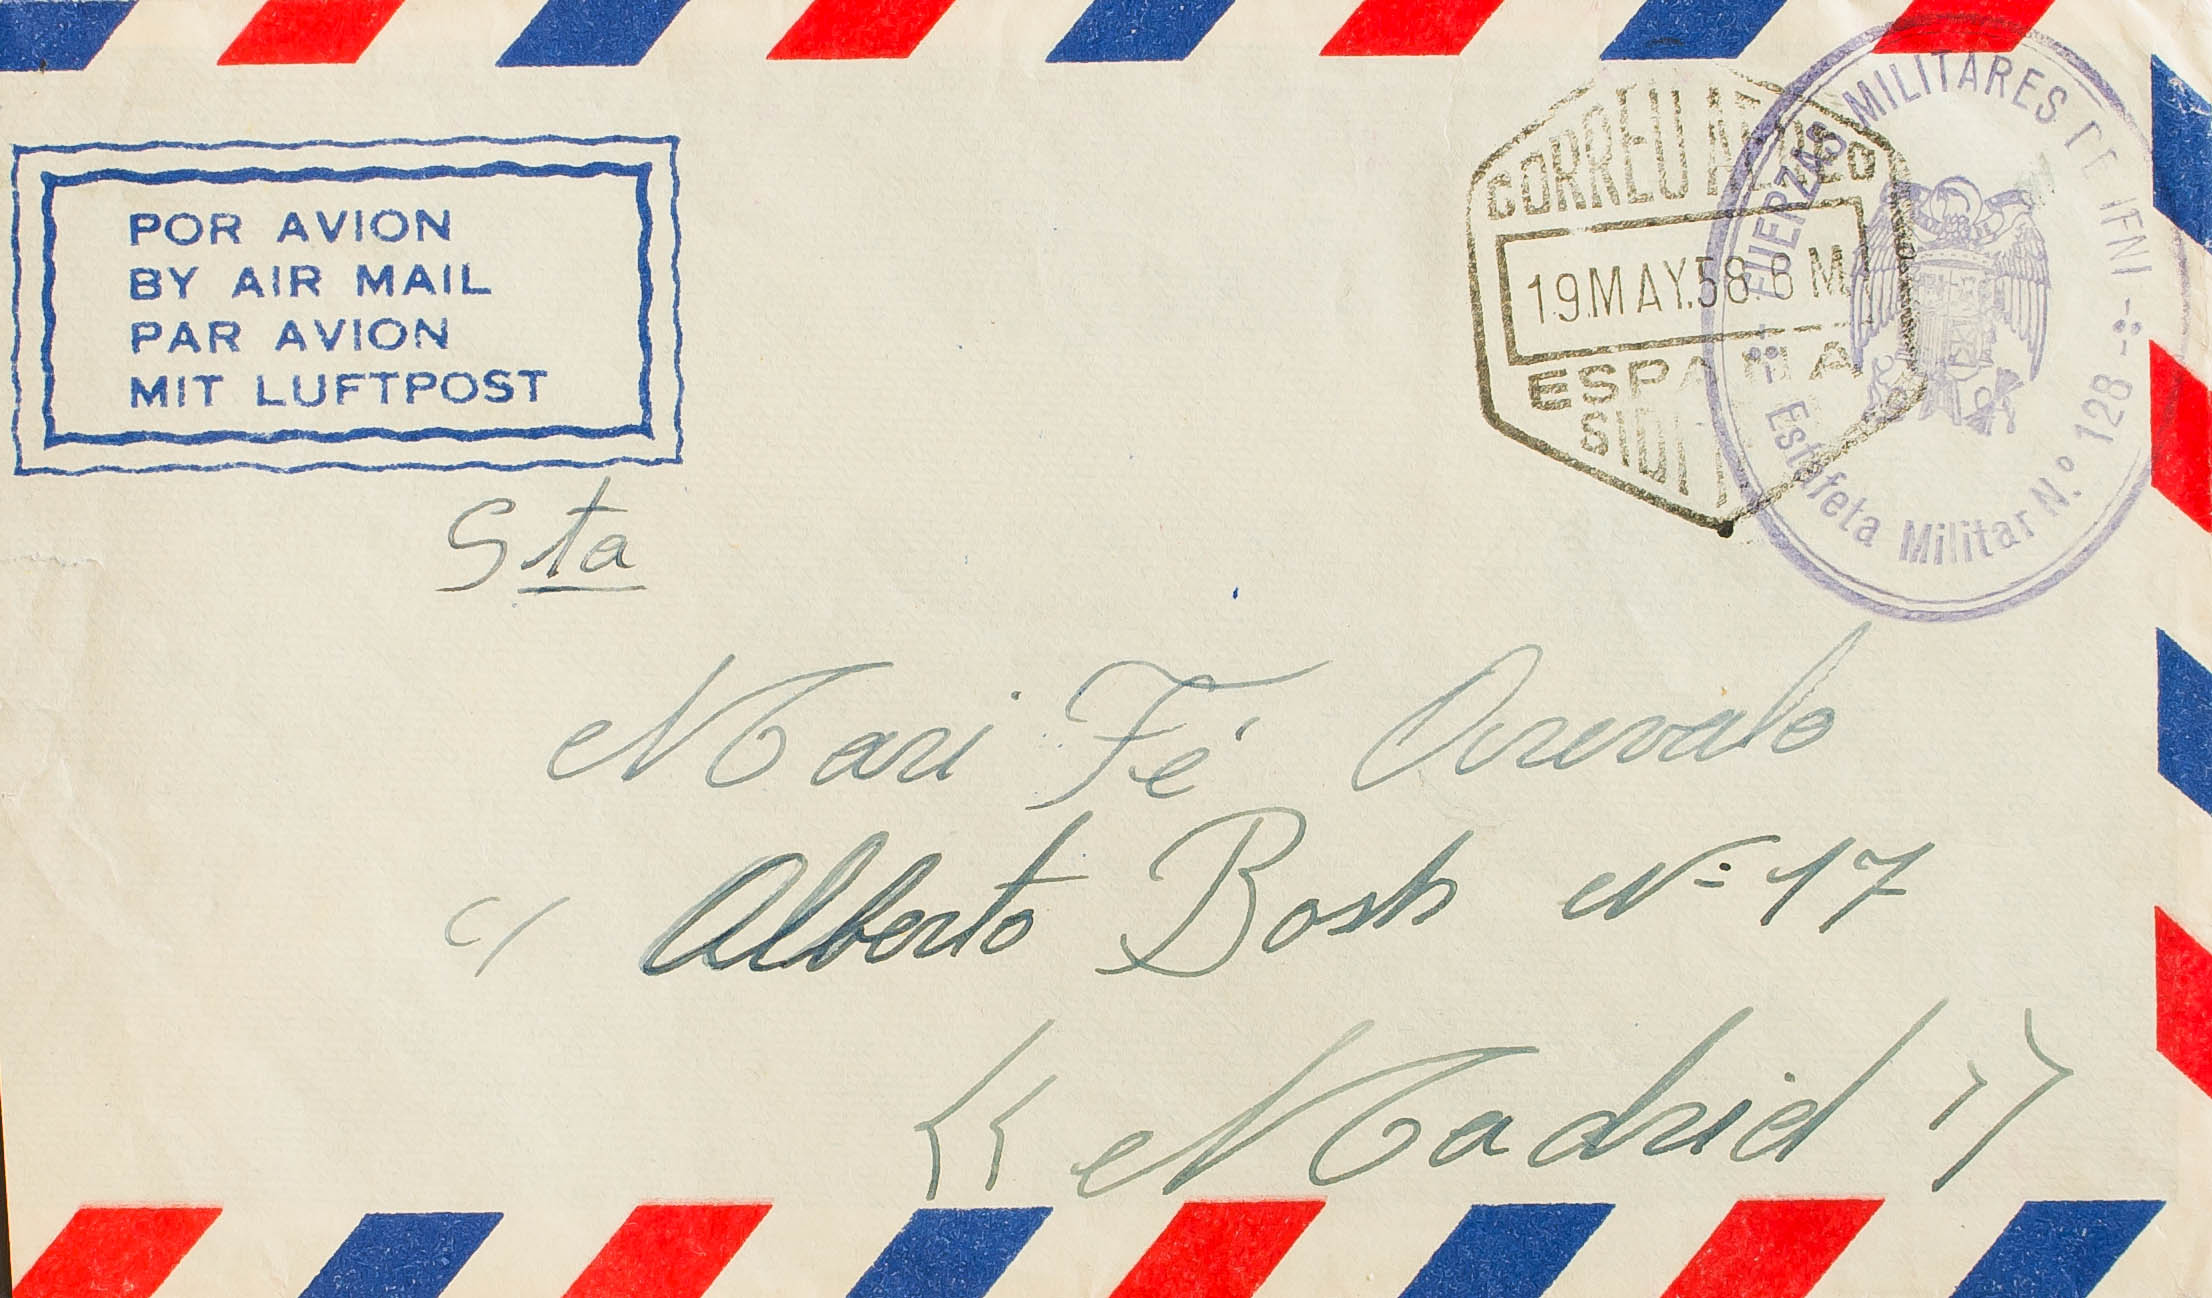 POR AVION
BY AIR MAIL
PAR AVION
MIT LUFTPOST
CORREO AEREO
19.MAY.58 8 M
ESPAÑA
SIDI
FUERZAS MILITARES DE IFNI
Estafeta Militar N.º 128
Sta
Mari Fé Arevalo
c/ Alberto Bosh Nº 17
<< Madrid >>